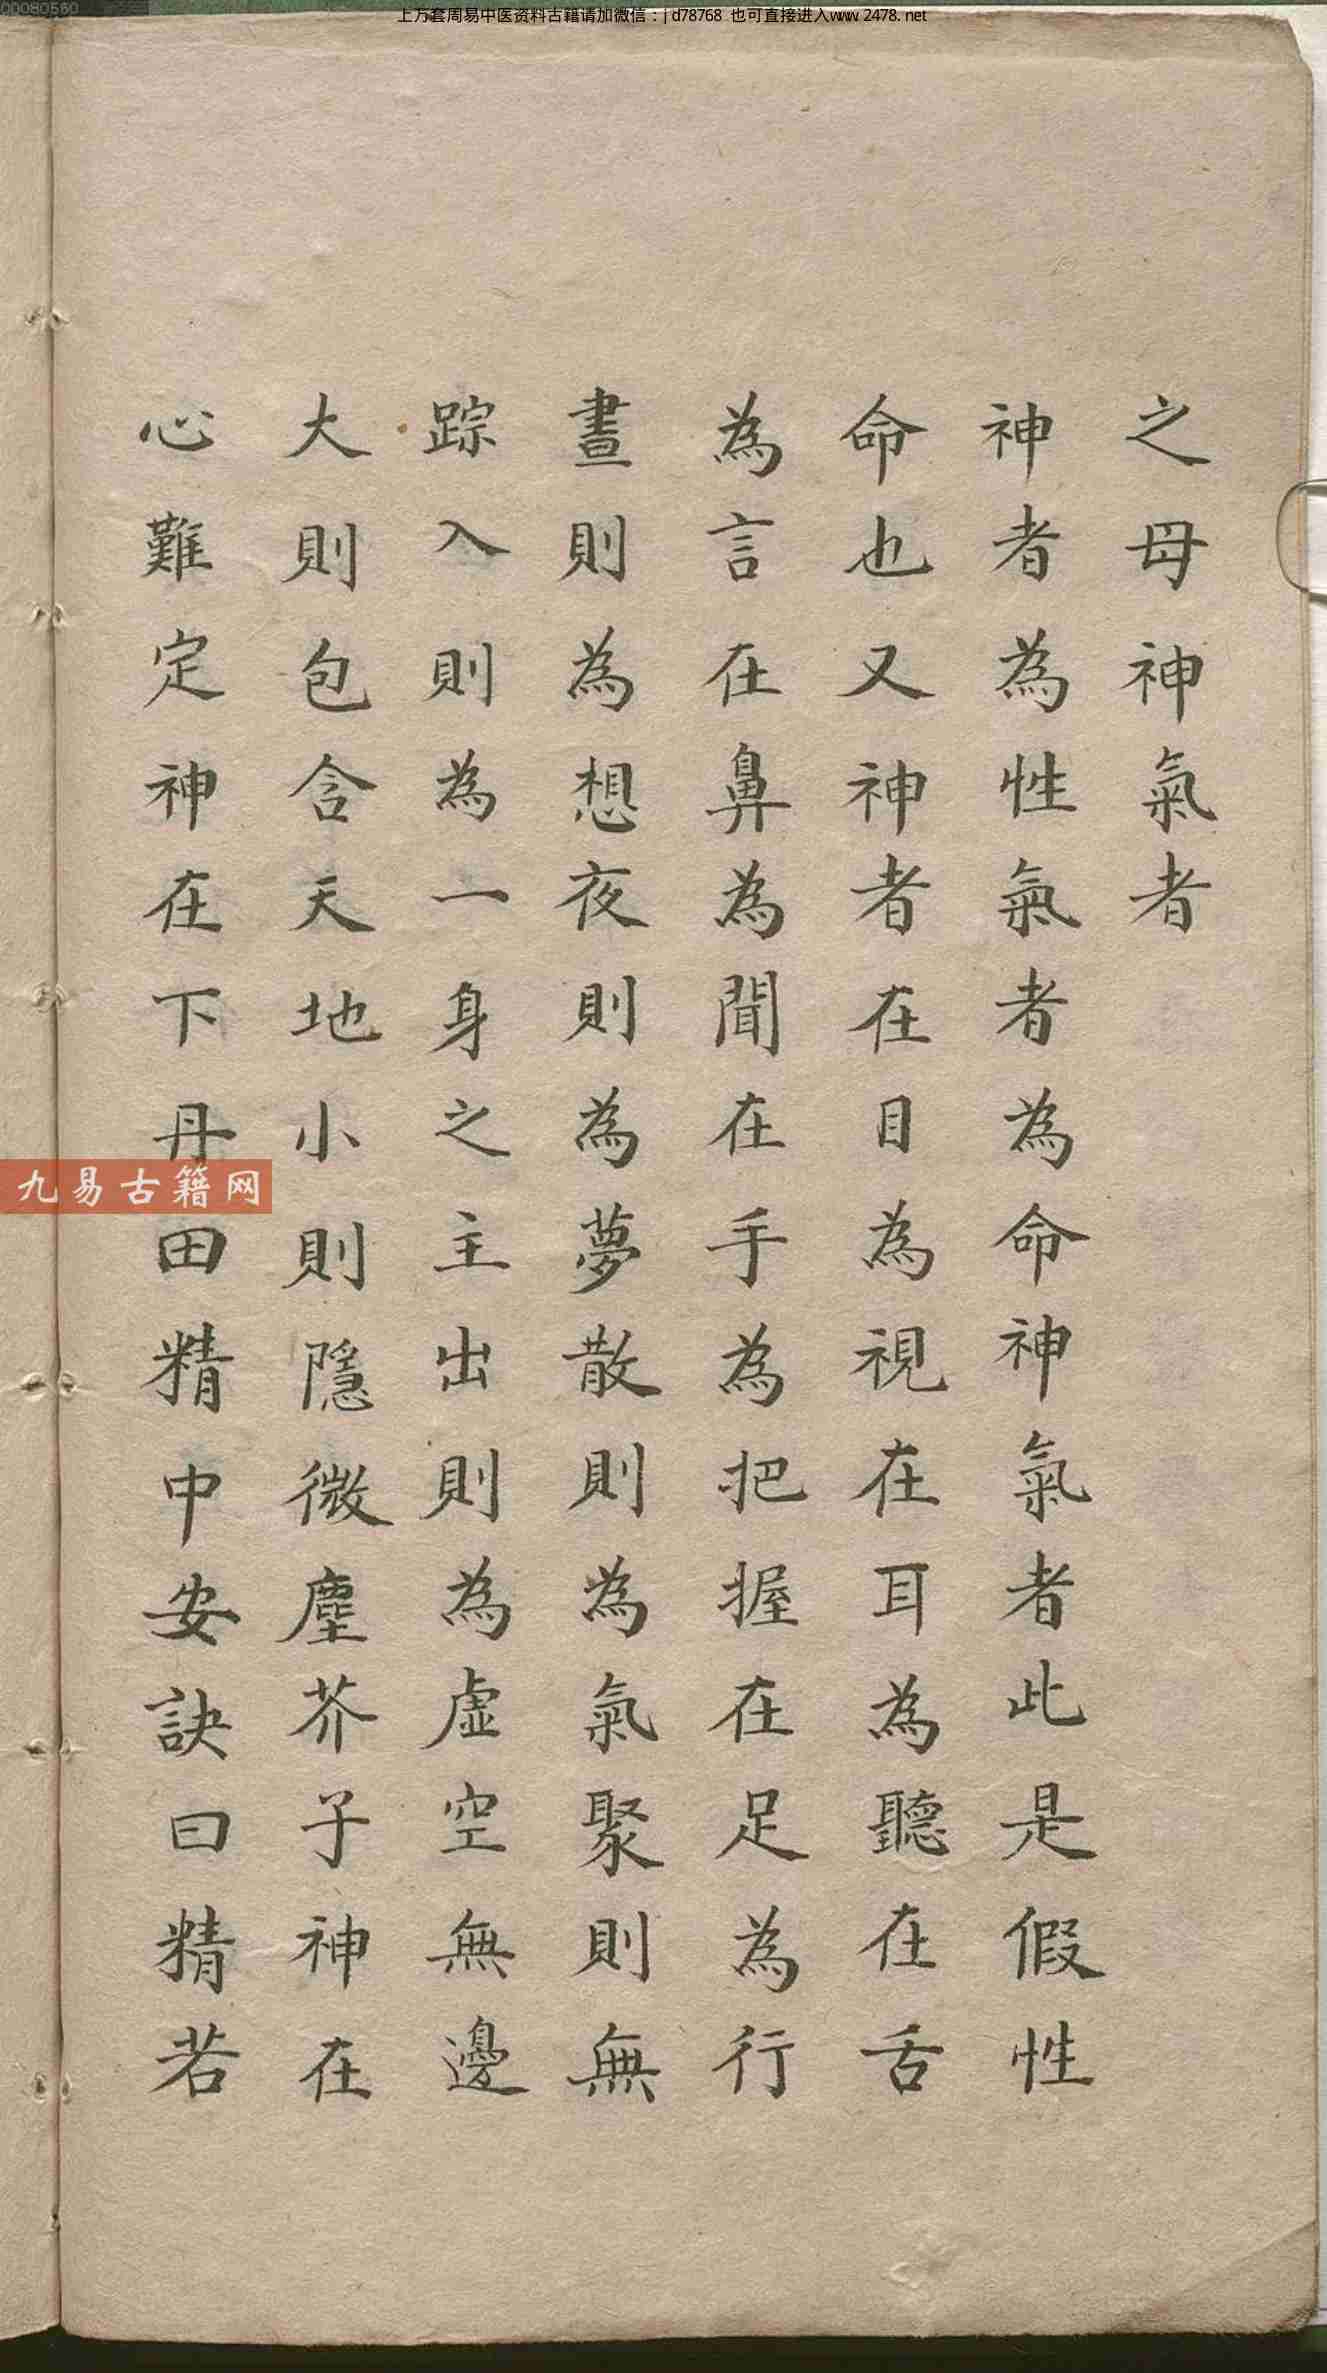 00080560
上万套周易中医资料古籍请加微信：jd78768 也可直接进入www 2478.net
之母神氣者
神者為性氣者為命神氣者此是假性
命也又神者在目為視在耳為聽在舌
為言在鼻為聞在手為把握在足為行
晝則為想夜則為夢散則為氣聚則無
踪入則為一身之主出則為虛空無邊
大則包含天地小則隱微塵芥子神在
心難定神在下丹田精中安訣曰精若
九易古籍网